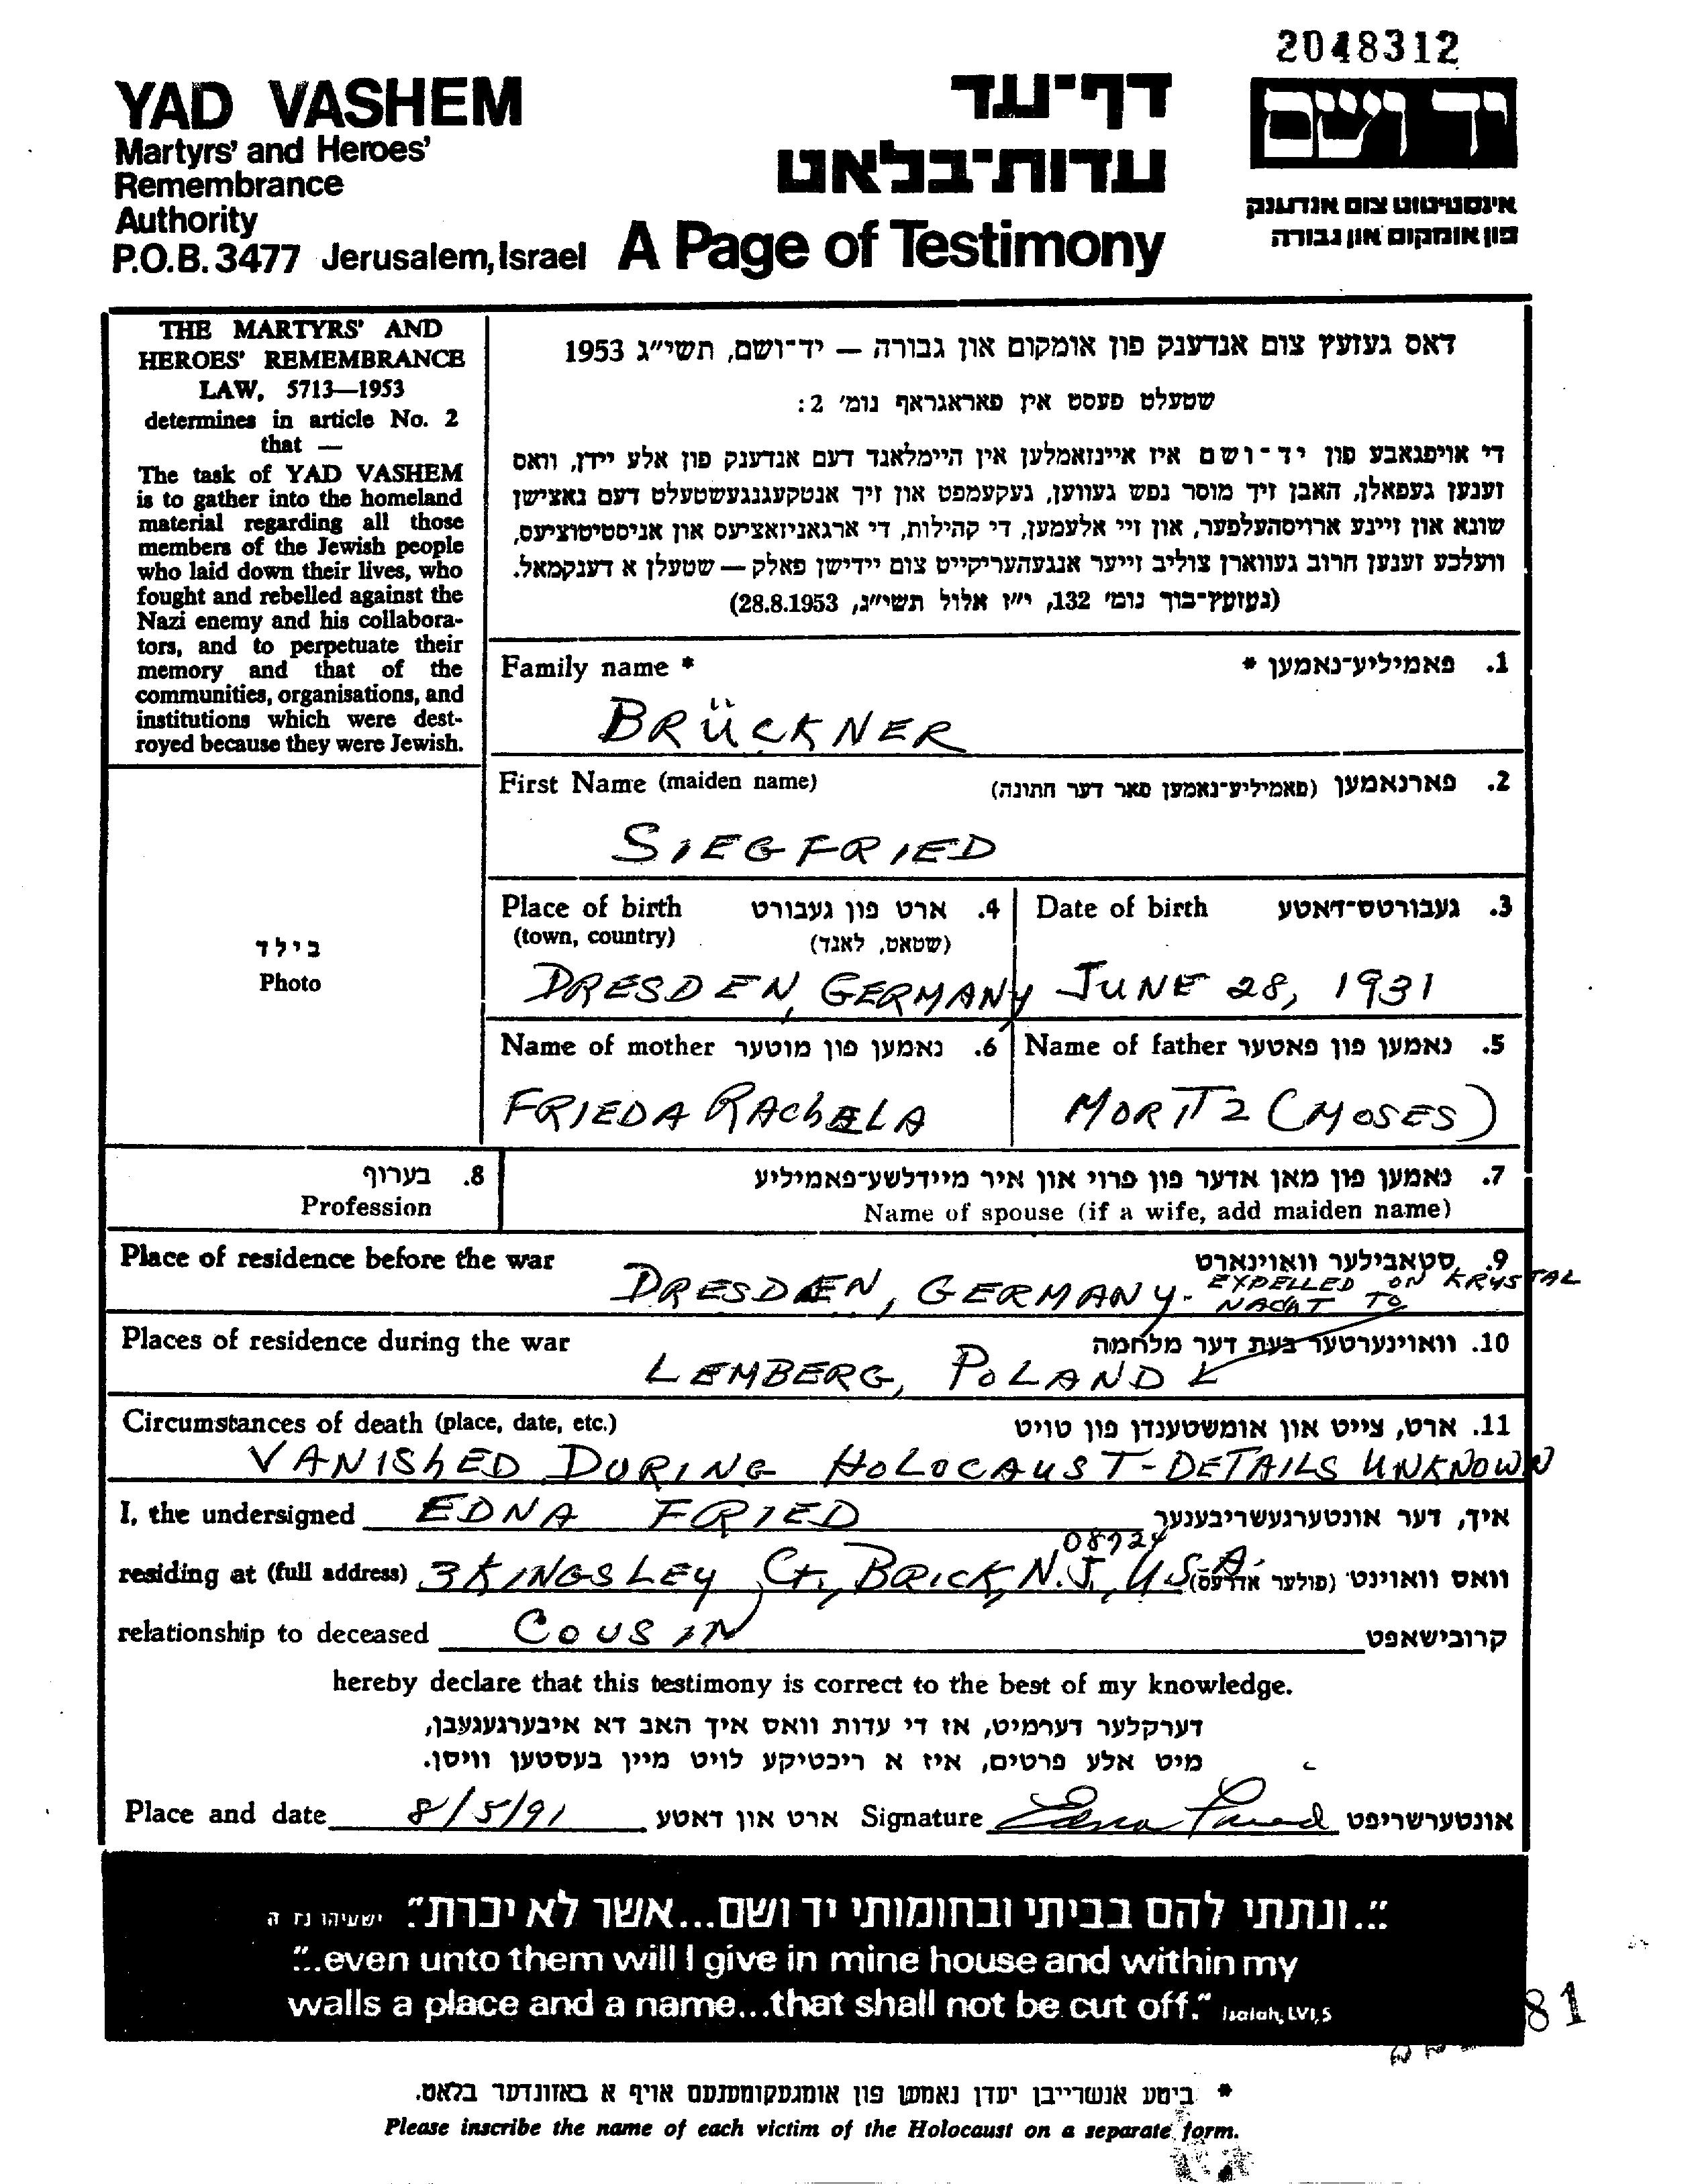 2048312
YAD VASHEM
Martyrs' and Heroes'
Remembrance
Authority
P.O.B. 3477 Jerusalem, Israel
דף־עד
עדות־בלאט
A Page of Testimony
יד ושם
אינסטיטוט צום אנדענק
פון אומקום און גבורה
THE MARTYRS' AND
HEROES' REMEMBRANCE
LAW, 5713—1953
determines in article No. 2
that —
The task of YAD VASHEM
is to gather into the homeland
material regarding all those
members of the Jewish people
who laid down their lives, who
fought and rebelled against the
Nazi enemy and his collabora-
tors, and to perpetuate their
memory and that of the
communities, organisations, and
institutions which were dest-
royed because they were Jewish.
דאס געזעץ צום אנדענק פון אומקום און גבורה — יד־ושם, תשי״ג 1953
שטעלט פעסט אין פאראגראף נומ׳ 2:
די אויפגאבע פון יד־ושם איז איינזאמלען אין היימלאנד דעם אנדענק פון אלע יידן, וואס
זענען געפאלן, האבן זיך מוסר נפש געווען, געקעמפט און זיך אנטקעגנגעשטעלט דעם נאצישן
שונא און זיינע ארויסהעלפער, און זיי אלעמען, די קהילות, די ארגאניזאציעס און אניסטיטוציעס,
וועלכע זענען חרוב געווארן צוליב זייער אנגעהעריקייט צום יידישן פאלק — שטעלן א דענקמאל.
(געזעץ־בוך נומ׳ 132, י״ז אלול תשי״ג, 28.8.1953)
Family name * פאמיליע־נאמען * .1
BRÜCKNER
First Name (maiden name) פארנאמען (פאמיליע־נאמען פאר דער חתונה) .2
SIEGFRIED
Place of birth ארט פון געבורט .4
(town, country) (שטאט, לאנד)
DRESDEN, GERMANY
Date of birth געבורטס־דאטע .3
JUNE 28, 1931
בילד
Photo
Name of mother נאמען פון מוטער .6
FRIEDA RACHELA
Name of father נאמען פון פאטער .5
MORITZ (MOSES)
בערוף .8
Profession
נאמען פון מאן אדער פון פרוי און איר מיידלשע־פאמיליע .7
Name of spouse (if a wife, add maiden name)
Place of residence before the war סטאבילער וואוינארט .9
DRESDEN, GERMANY - EXPELLED ON KRYSTAL
NACHT TO
Places of residence during the war וואוינערטער בעת דער מלחמה .10
LEMBERG, POLAND
Circumstances of death (place, date, etc.) ארט, צייט און אומשטענדן פון טויט .11
VANISHED DURING HOLOCAUST - DETAILS UNKNOWN
I, the undersigned EDNA FRIED איך, דער אונטערגעשריבענער
08724
residing at (full address) 3 KINGSLEY Ct., BRICK, N.J., U.S.A. וואס וואוינט (פולער אדרעס)
relationship to deceased COUSIN קרובישאפט
hereby declare that this testimony is correct to the best of my knowledge.
דערקלער דערמיט, אז די עדות וואס איך האב דא איבערגעגעבן,
מיט אלע פרטים, איז א ריכטיקע לויט מיין בעסטען וויסן.
Place and date 8/5/91 ארט און דאטע Signature Edna Fried אונטערשריפט
"..ונתתי להם בביתי ובחומותי יד ושם...אשר לא יכרת" ישעיהו נו ה
"..even unto them will I give in mine house and within my
walls a place and a name...that shall not be cut off." Isaiah, LVI, 5
81
* ביטע אנשרייבן יעדן נאמען פון אומגעקומענעם אויף א באזונדער בלאט.
Please inscribe the name of each victim of the Holocaust on a separate form.